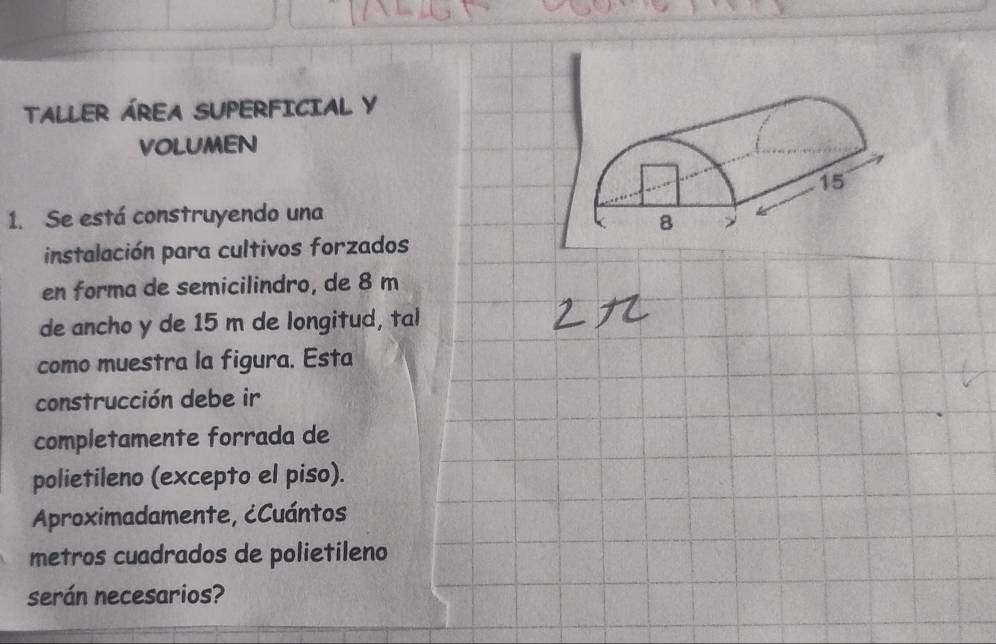 TALLER ÁREA SUPERFICIAL Y
VOLUMEN
1. Se está construyendo una
instalación para cultivos forzados
en forma de semicilindro, de 8 m
de ancho y de 15 m de longitud, tal
como muestra la figura. Esta
construcción debe ir
completamente forrada de
polietileno (excepto el piso).
Aproximadamente, ¿Cuántos
metros cuadrados de polietileno
serán necesarios?
15
8
2π